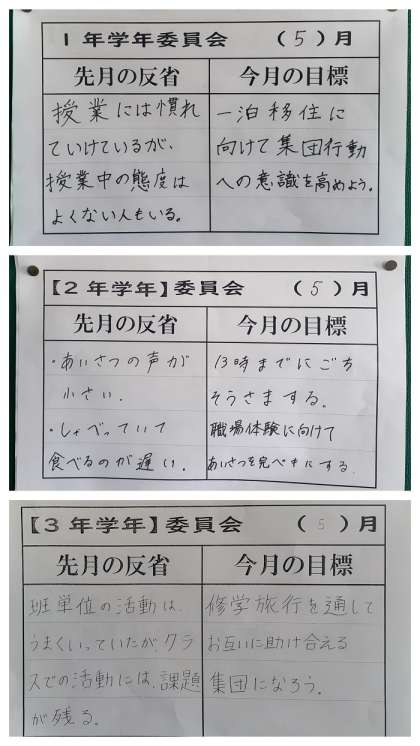 1年学年委員会 （5）月
先月の反省 今月の目標
授業には慣れ
ていけているが、
授業中の態度は
よくない人もいる。
一泊移住に
向けて集団行動
への意識を高めよう。
【2年学年】委員会 （5）月
先月の反省 今月の目標
・あいさつの声が
小さい.
・しゃべっていて
食べるのが遅い.
13時までにごち
そうさまする。
職場体験に向けて
あいさつを完ペキにする.
【3年学年】委員会 （5）月
先月の反省 今月の目標
班単位の活動は、
うまくいっていたがクラ
スでの活動には、課題
が残る。
修学旅行を通して
お互いに助け合える
集団になろう。